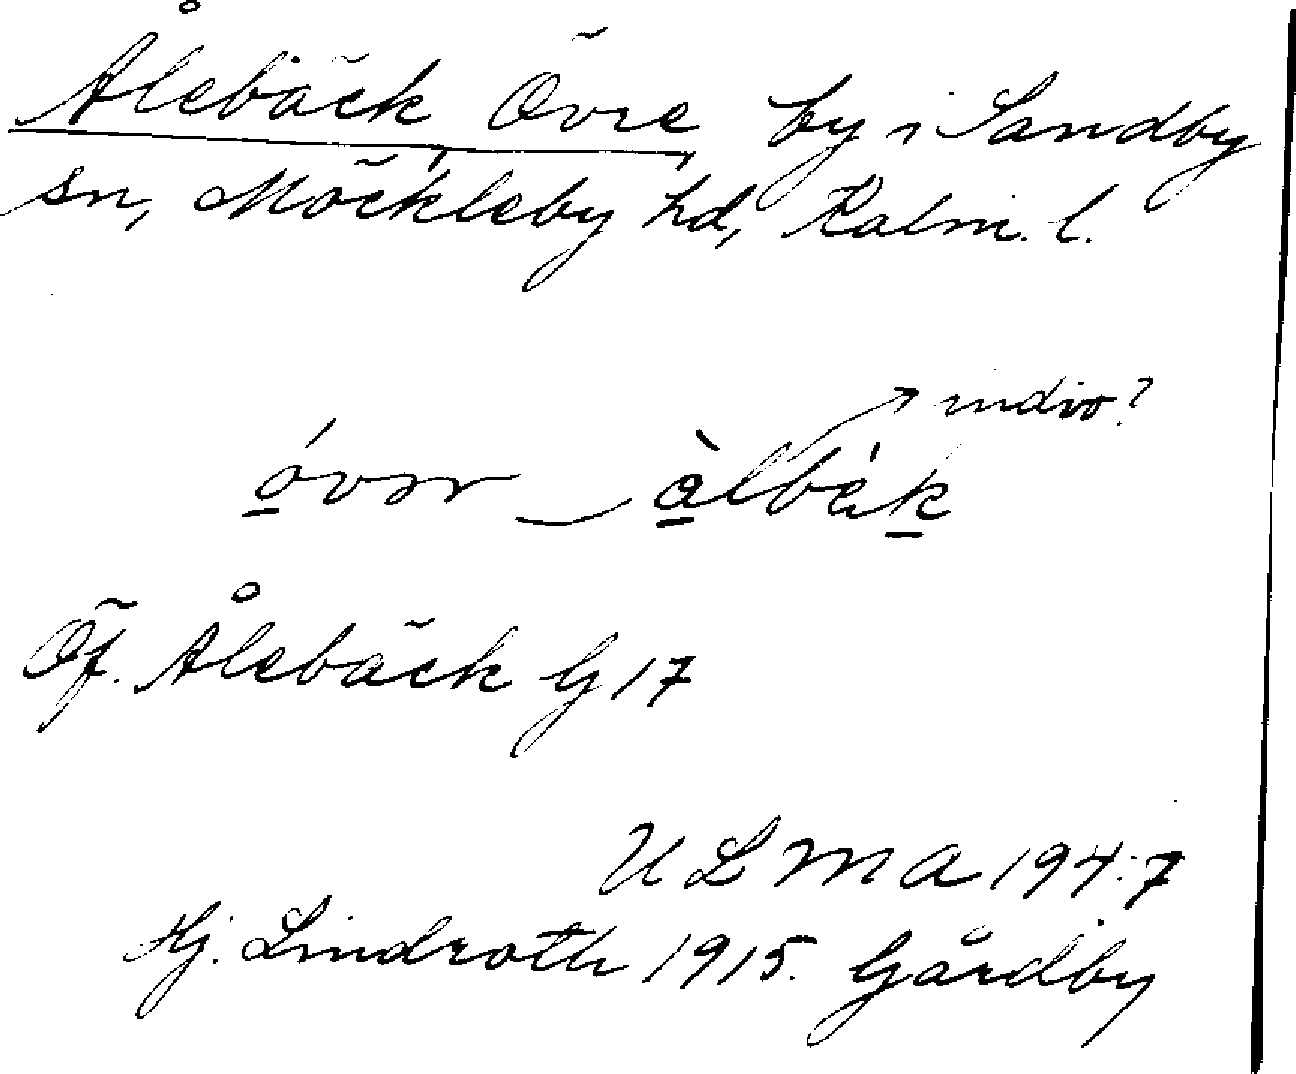 Ålebäck, Övre, by i Sandby
sn, Möckleby hd, Kalm. l.
indiv?
óvər àlbèk
Öf. Ålebäck G 17
ULMA 194:7
Hj. Lindroth 1915. Gårdby